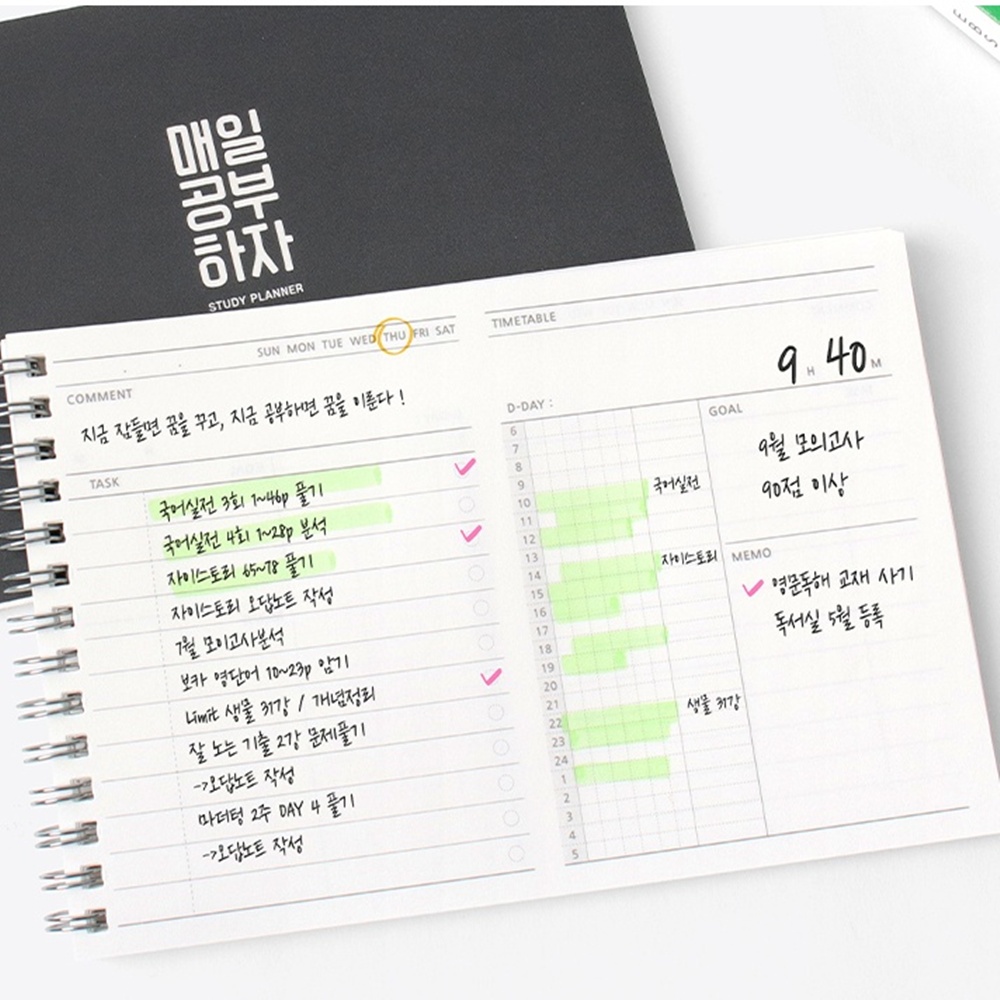 매일
공부
하자
STUDY PLANNER
SUN MON TUE WED THU FRI SAT
COMMENT
지금 잠들면 꿈을 꾸고, 지금 공부하면 꿈을 이룬다!
TASK
국어실전 3회 1~46p 풀기
국어실전 4회 1~28p 분석
자이스토리 65~78 풀기
자이스토리 오답노트 작성
7월 모의고사분석
보카 영단어 10~23p 암기
Limit 생물 37강 / 개념정리
잘 노는 기출 2강 문제풀기
->오답노트 작성
마더텅 2주 DAY 4 풀기
->오답노트 작성
TIMETABLE
9 H 40 M
D-DAY :
6
7
8
9 국어실전
10
11
12
13 자이스토리
14
15
16
17
18
19
20
21 생물 37강
22
23
24
1
2
3
4
5
GOAL
9월 모의고사
90점 이상
MEMO
영문독해 교재 사기
독서실 5월 등록